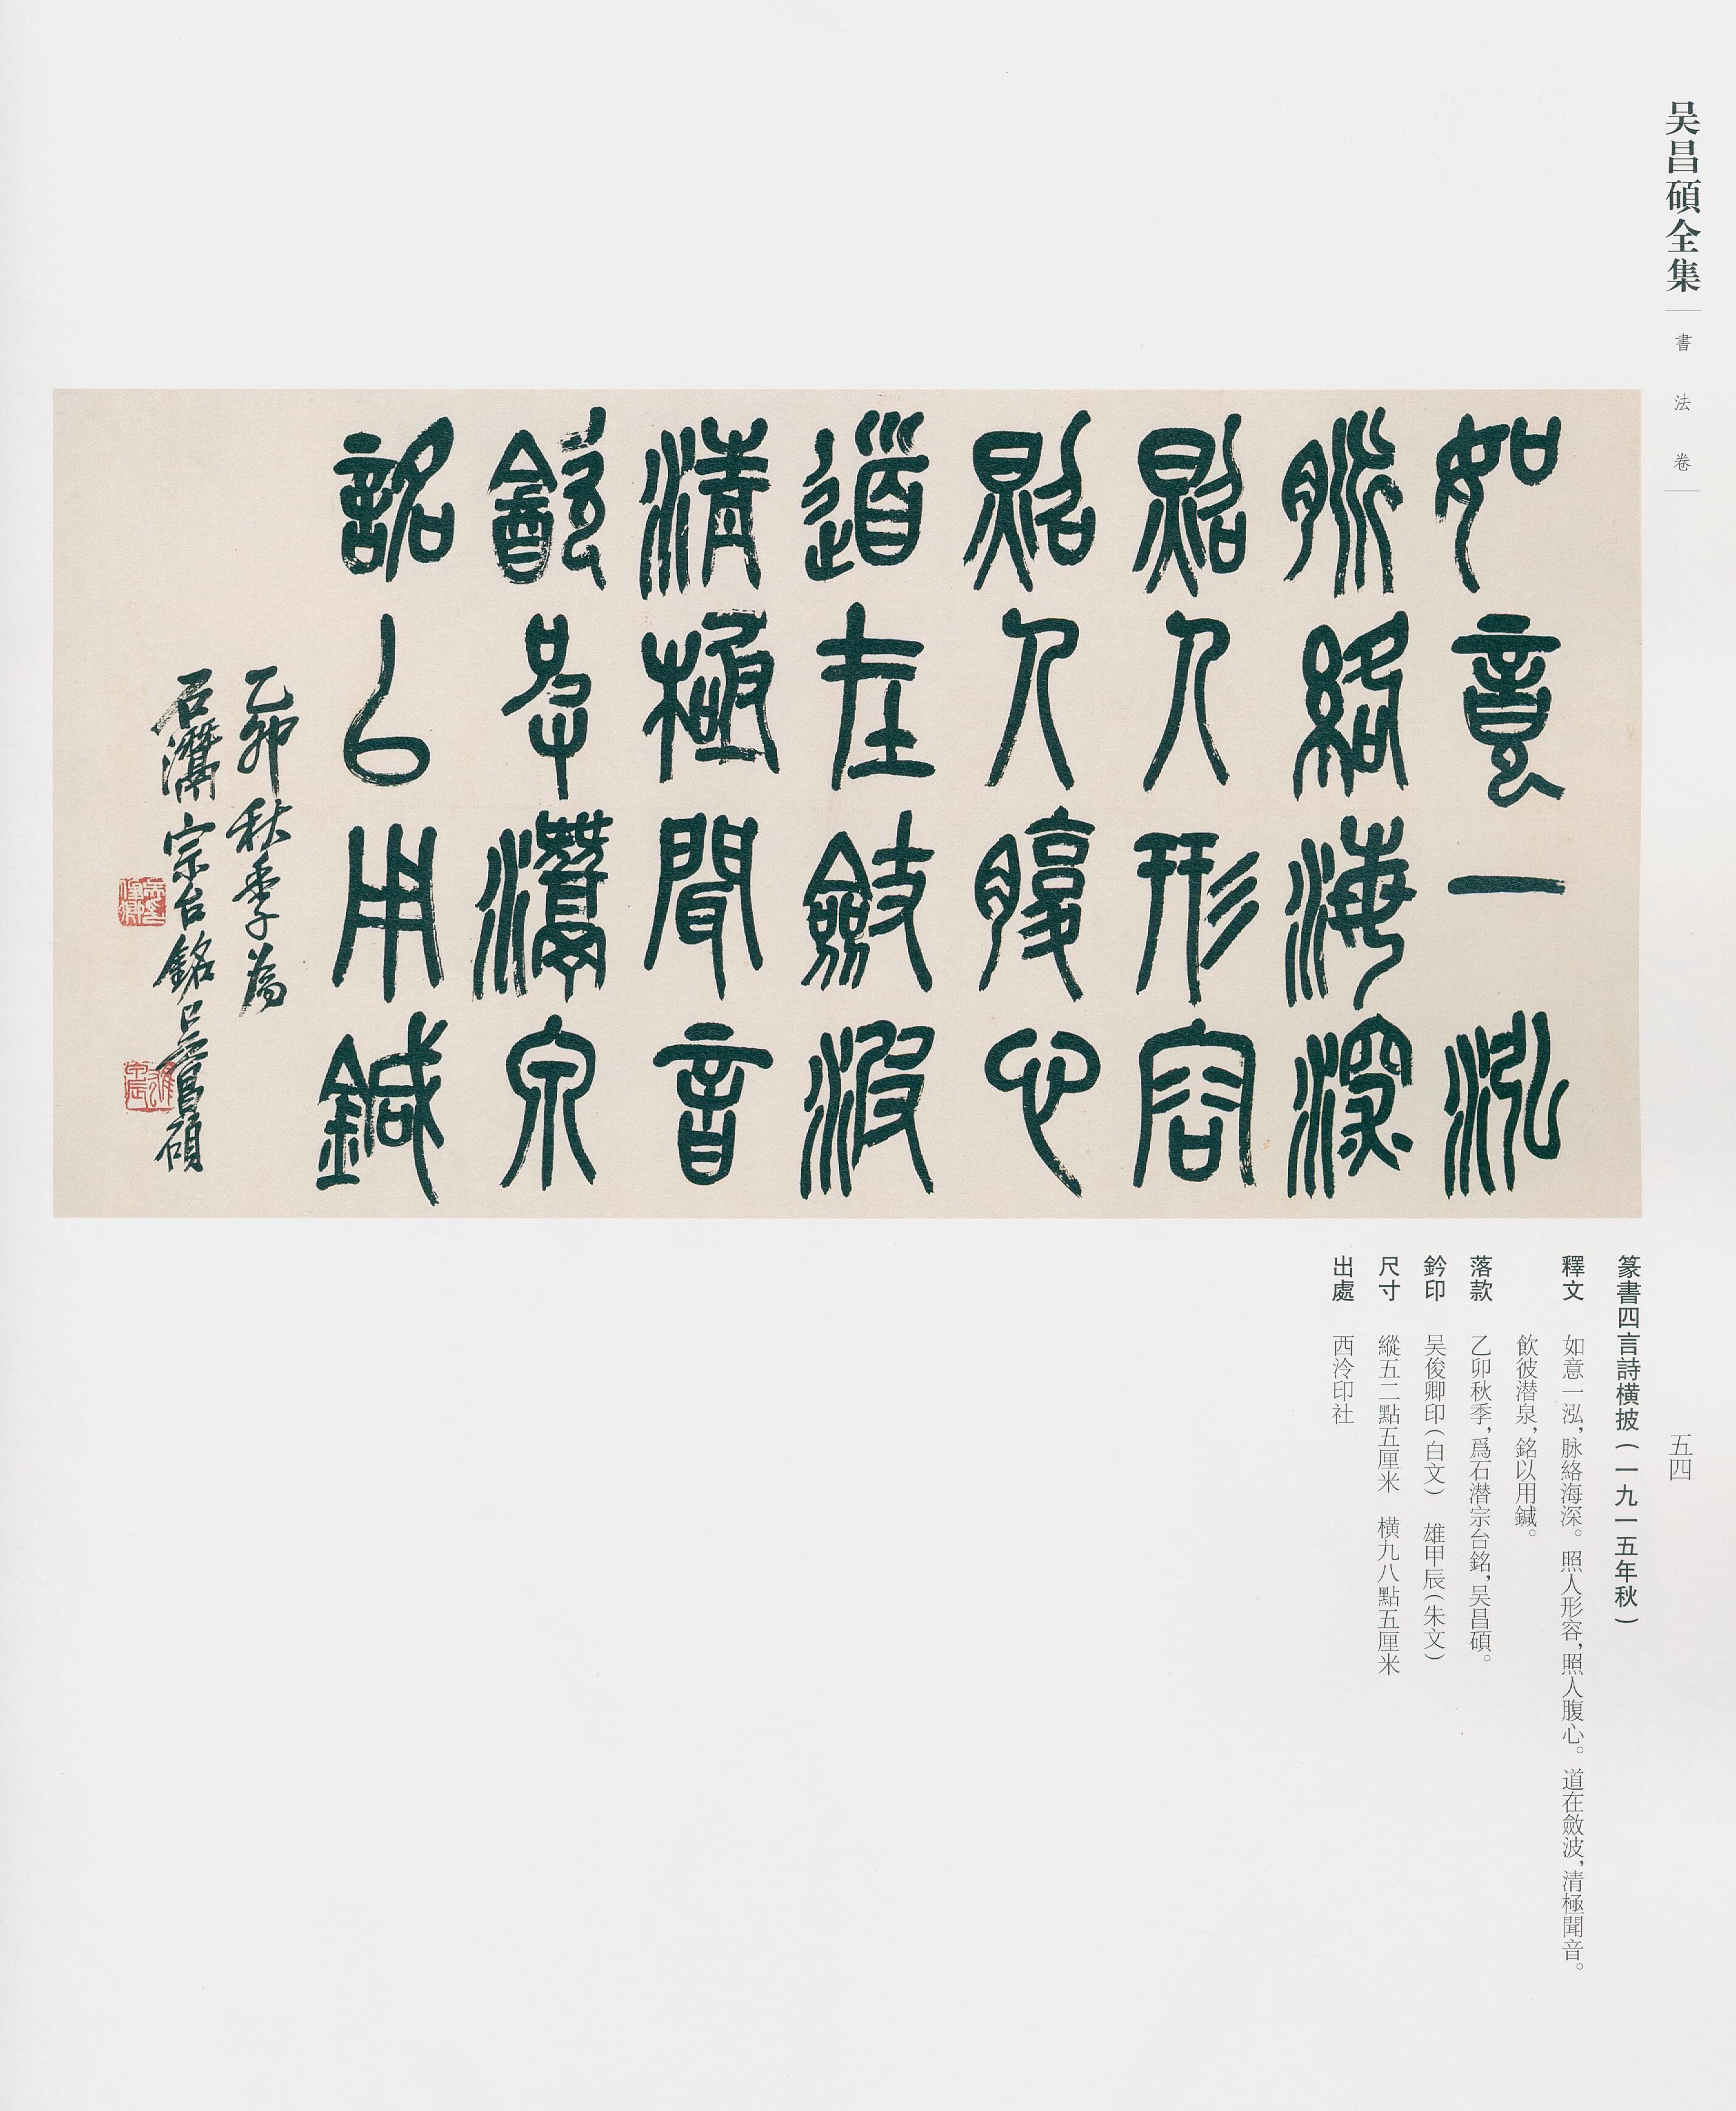 吴昌碩全集
書法卷
如意一泓
脈絡海深
照人形容
照人腹心
道在斂波
清極聞音
飲彼潛泉
銘以用鍼
乙卯秋季為
石潛宗台銘吳昌碩
吳俊卿印
雄甲辰
五四
篆書四言詩横披(一九一五年秋)
釋文 如意一泓,脉絡海深。照人形容,照人腹心。道在斂波,清極聞音。
飲彼潜泉,銘以用鍼。
落款 乙卯秋季,爲石潜宗台銘,吴昌碩。
鈐印 吴俊卿印(白文) 雄甲辰(朱文)
尺寸 縱五二點五厘米 横九八點五厘米
出處 西泠印社